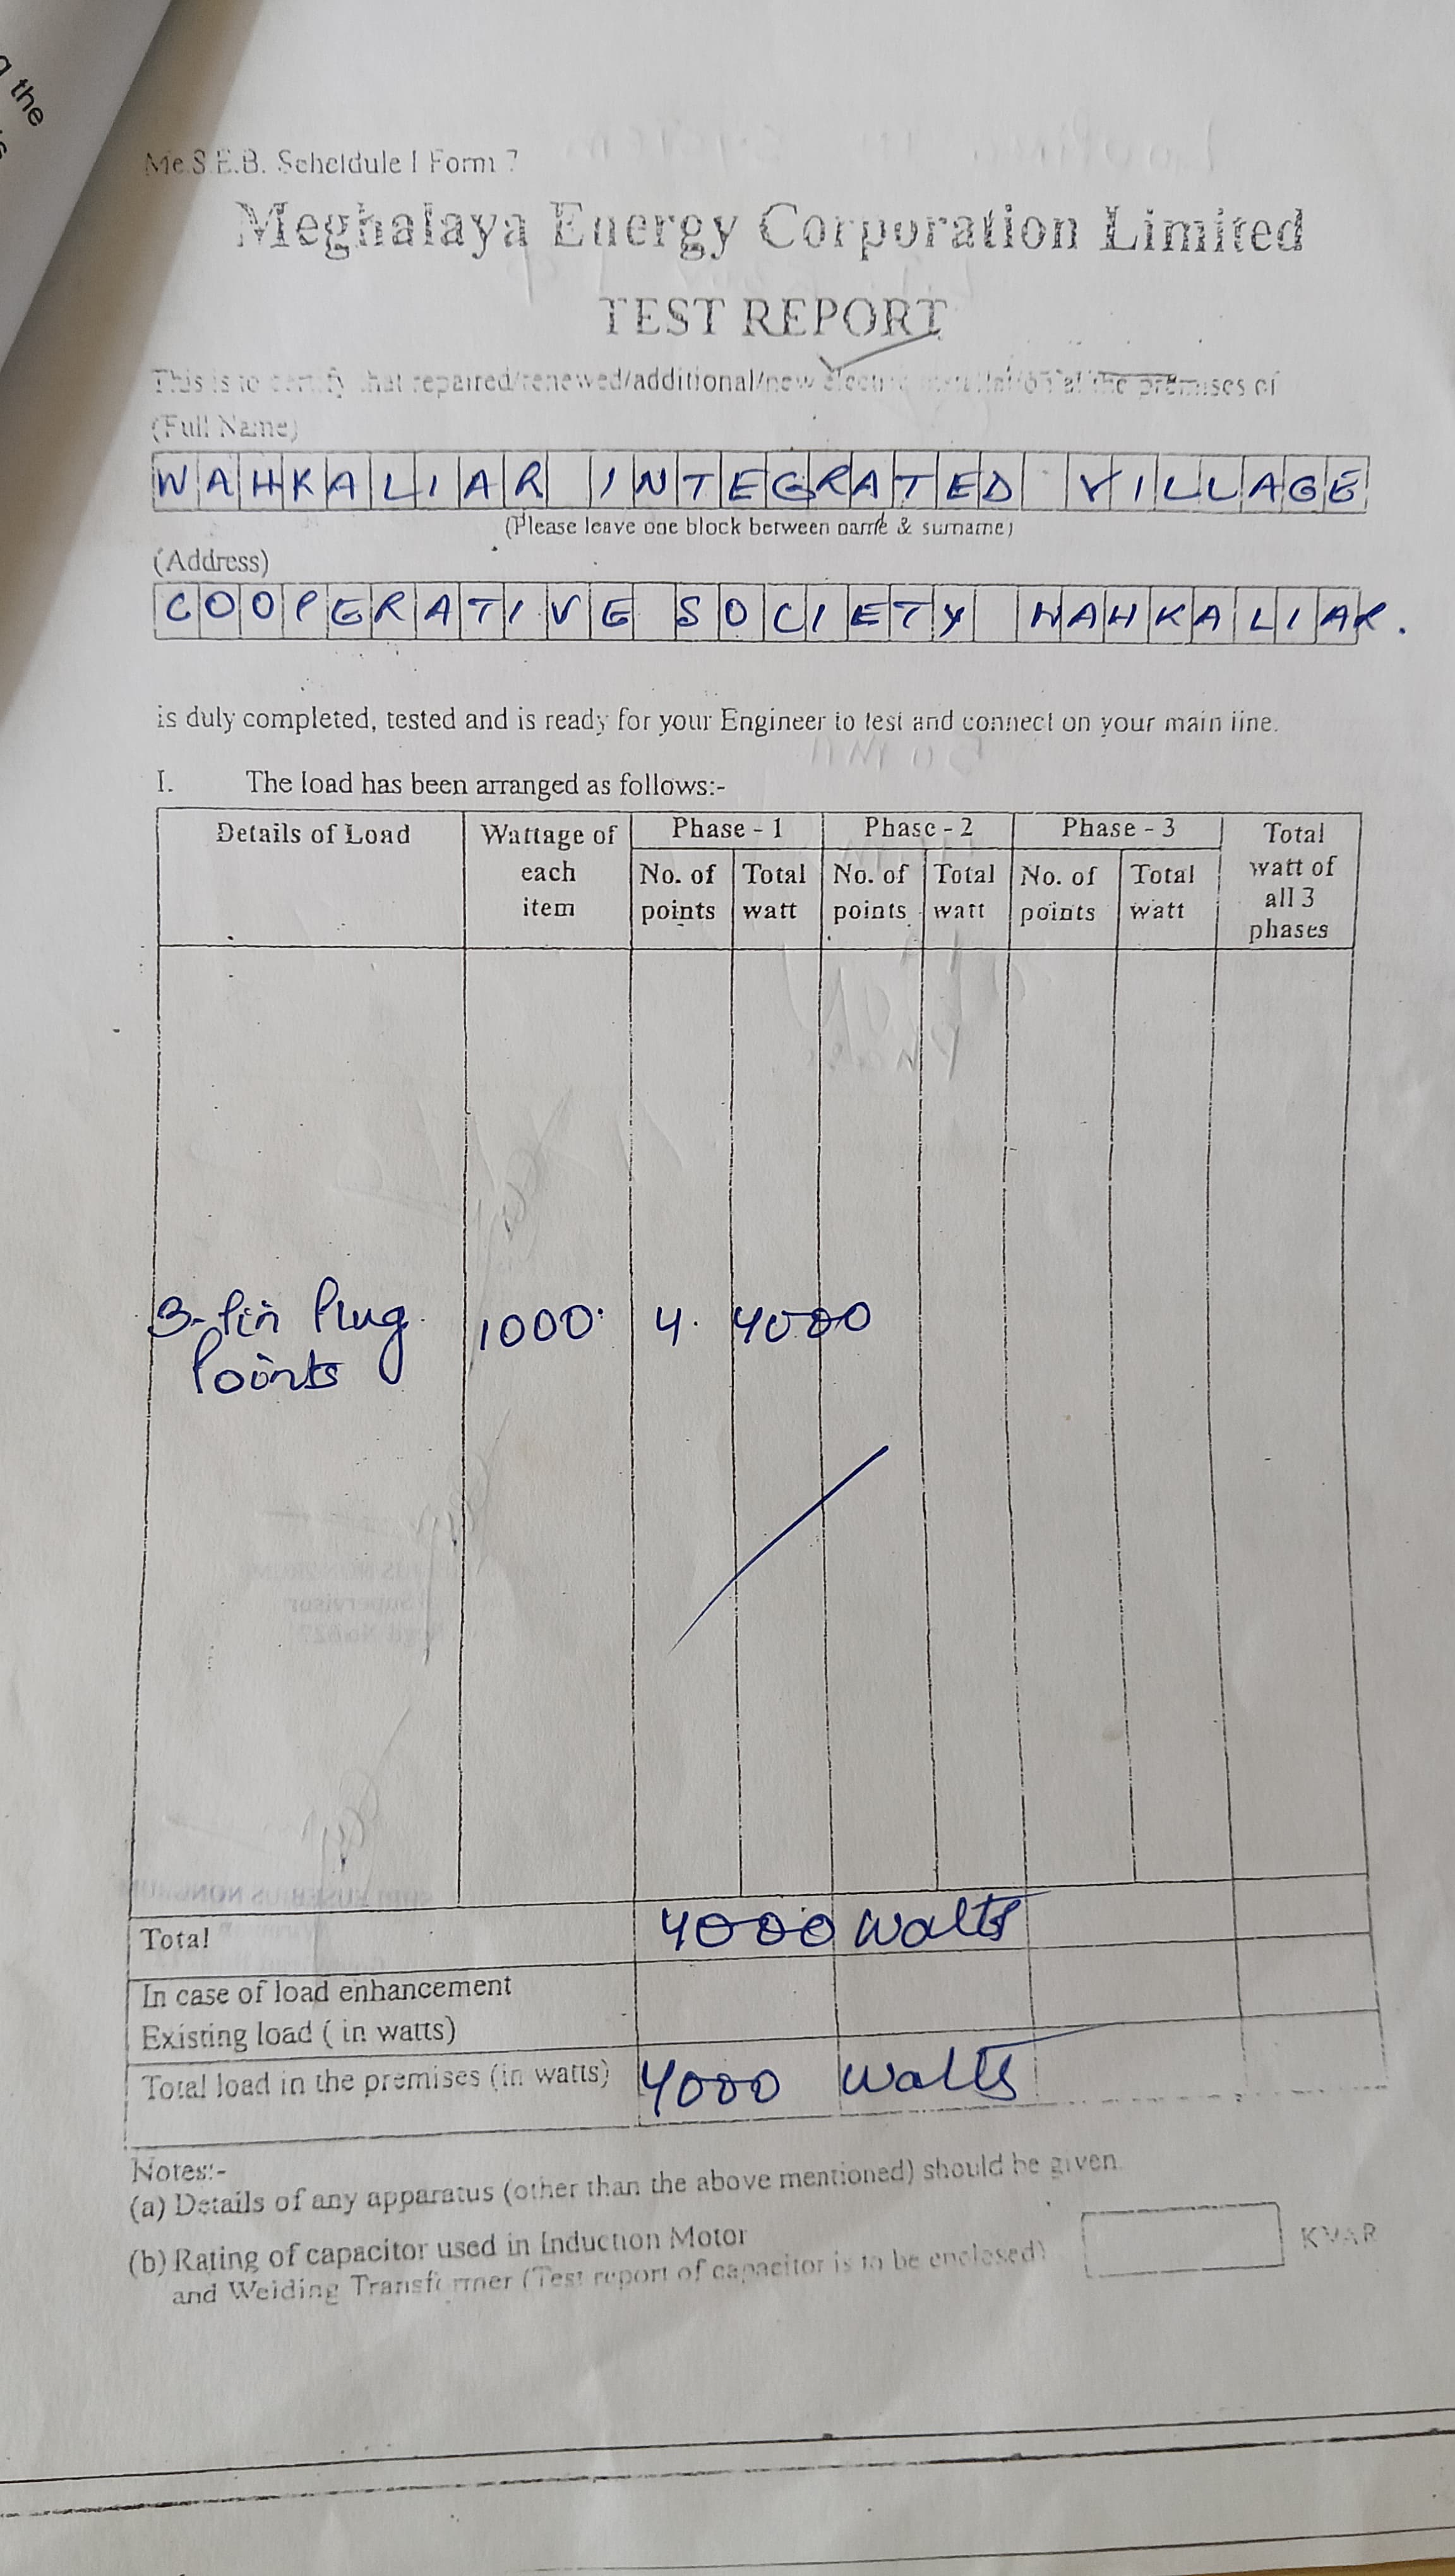 the
Me.S.E.B. Scheldule I Form 7
Meghalaya Energy Corporation Limited
TEST REPORT
This is to certify that repaired/renewed/additional/new electric installation at the premises of
(Full Name)
WAHKALIAR INTEGRATED VILLAGE
(Please leave one block between name & surname)
(Address)
COOPERATIVE SOCIETY WAHKALIAR.
is duly completed, tested and is ready for your Engineer to test and connect on your main line.
I. The load has been arranged as follows:-
Details of Load Wattage of each item Phase - 1 Phase - 2 Phase - 3 Total watt of all 3 phases
No. of points Total watt No. of points Total watt No. of points Total watt
3-Pin Plug 1000 4 4000
Points
Total 4000 watts
In case of load enhancement
Existing load ( in watts)
Total load in the premises (in watts) 4000 watts
Notes:-
(a) Details of any apparatus (other than the above mentioned) should be given.
(b) Rating of capacitor used in Induction Motor
and Welding Transformer (Test report of capacitor is to be enclosed) KVAR